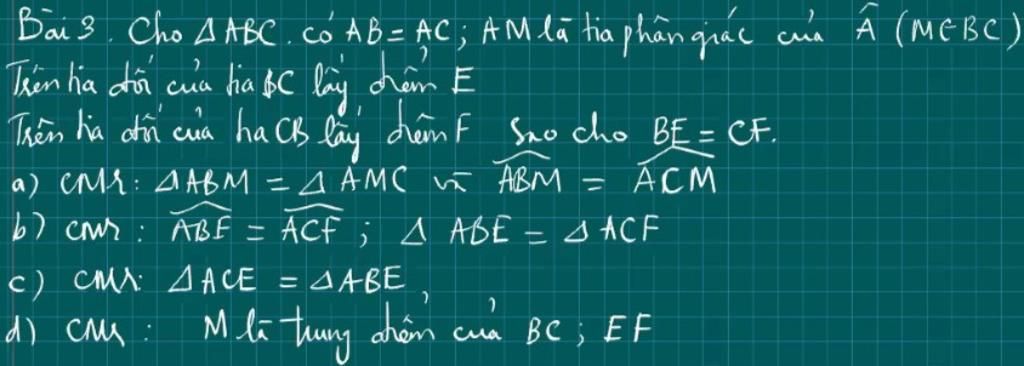 Bài 3. Cho Δ ABC. có AB = AC; AM là tia phân giác của Â (M∈BC)
Trên tia đối của tia BC lấy điểm E
Trên tia đối của tia CB lấy điểm F sao cho BE = CF.
a) CMR: ΔABM = Δ AMC và \widehat{ABM} = \widehat{ACM}
b) CMR: \widehat{ABE} = \widehat{ACF} ; Δ ABE = Δ ACF
c) CMR: ΔACE = ΔABE,
d) CMR: M là trung điểm của BC; EF